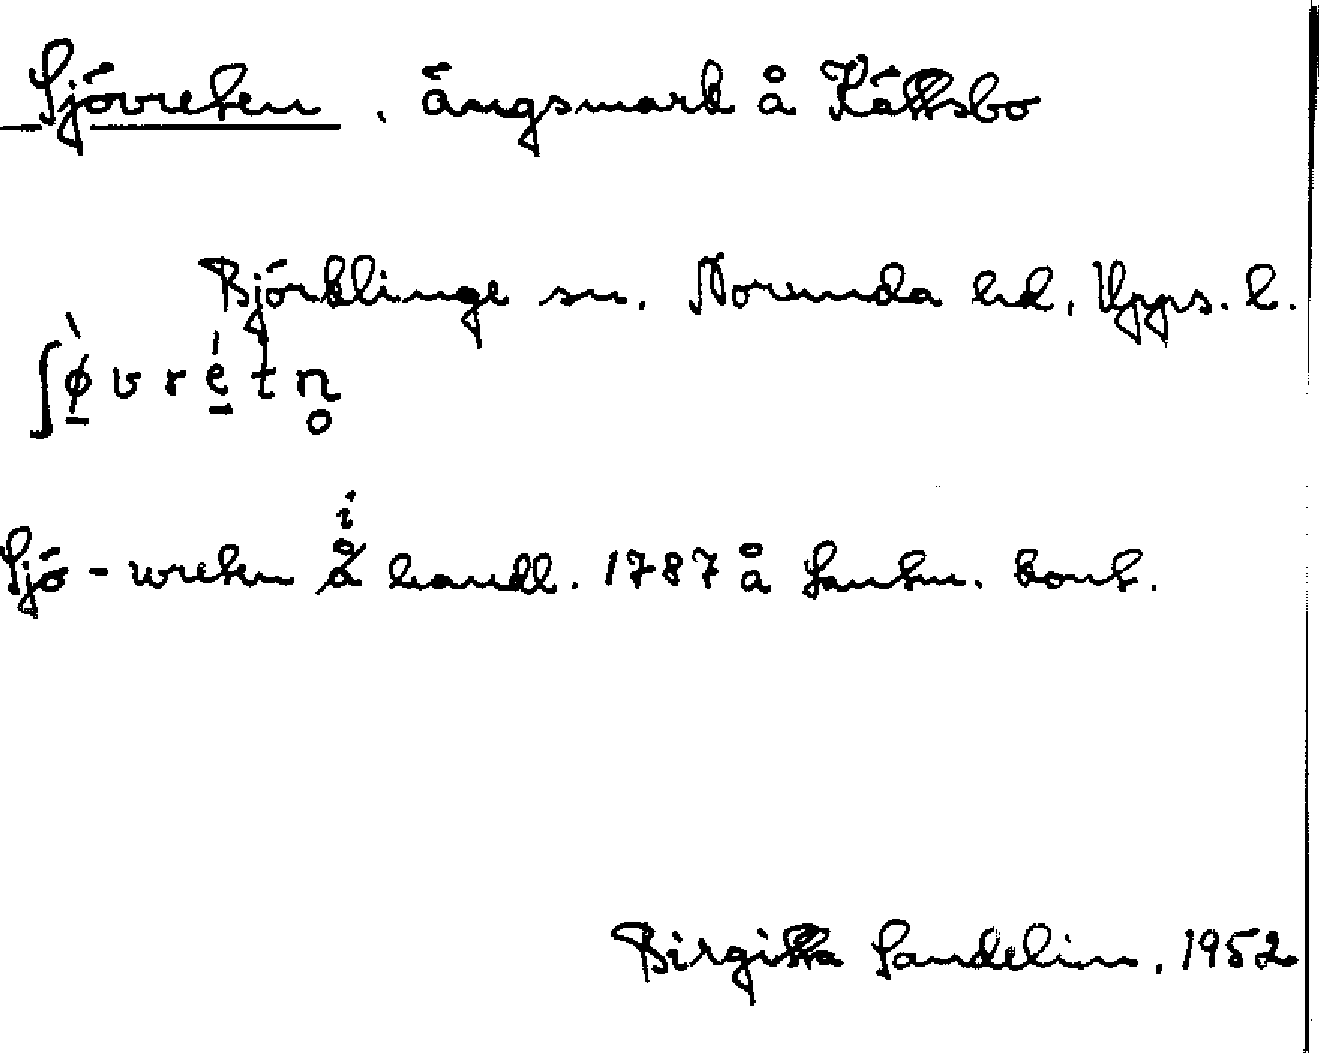 Sjövreten, ängsmark å Kättsbo
Björklinge sn. Norunda hd, Upps. l.
ʃø̠̀vré̠tn̥
Sjö-wreten i handl. 1787 å Lantm. kont.
Birgitta Sandelin, 1952